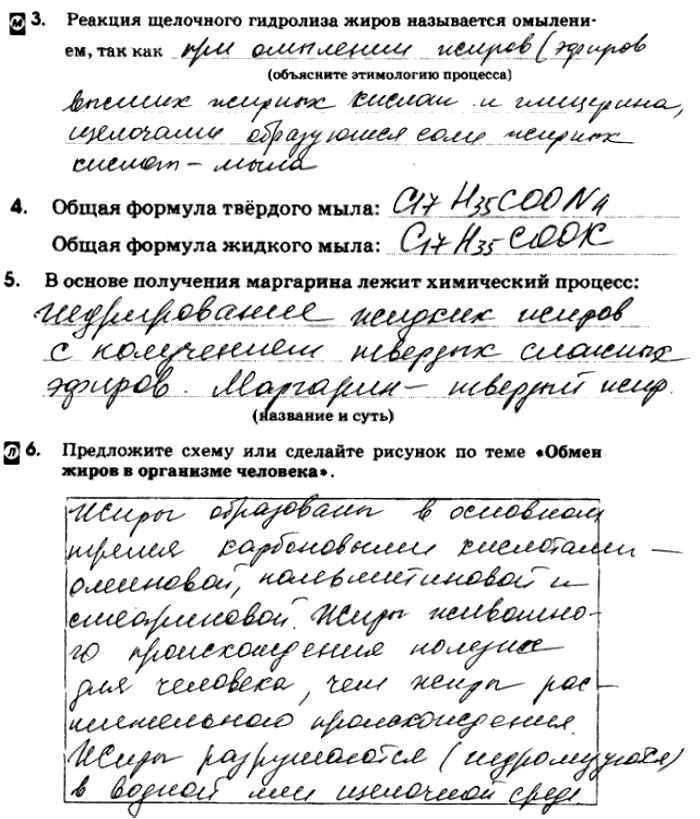 М 3. Реакция щелочного гидролиза жиров называется омылени-
ем, так как при омылении жиров (эфиров
(объясните этимологию процесса)
высших жирных кислот и глицерина,
щелочами образующиеся соли жирных
кислот – мыла
4. Общая формула твёрдого мыла: C17H35COONa
Общая формула жидкого мыла: C17H35COOK
5. В основе получения маргарина лежит химический процесс:
гидрирование жидких жиров
с получением твердых сложных
эфиров. Маргарин – твердый жир.
(название и суть)
Л 6. Предложите схему или сделайте рисунок по теме «Обмен
жиров в организме человека».
Жиры образованы в основном
тремя карбоновыми кислотами –
олеиновой, пальмитиновой и
стеариновой. Жиры животно-
го происхождения полезнее
для человека, чем жиры рас-
тительного происхождения.
Жиры разрушаются (гидролизуются)
в водной или щелочной среде